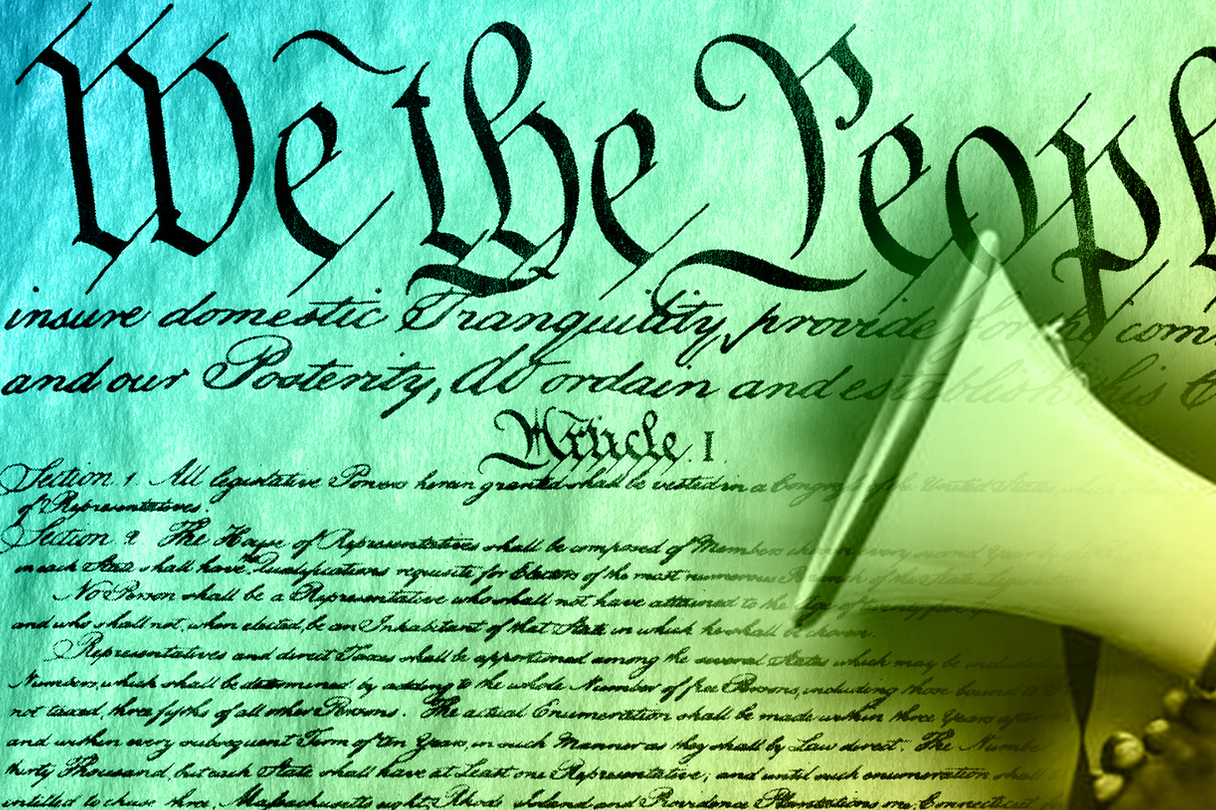 We the Peopl
insure domestic Tranquility, provide for the com
and our Posterity, do ordain and establish this C
Article. I.
Section. 1. All legislative Powers herein granted shall be vested in a Congress of the United States, which
of Representatives.
Section. 2. The House of Representatives shall be composed of Members chosen every second Year by
in each State shall have the Qualifications requisite for Electors of the most numerous Branch of the State
No Person shall be a Representative who shall not have attained to the Age of twenty five
and who shall not, when elected, be an Inhabitant of that State in which he shall be chosen.
Representatives and direct Taxes shall be apportioned among the several States which may be included
Numbers, which shall be determined by adding to the whole Number of free Persons, including those bound to
not taxed, three fifths of all other Persons. The actual Enumeration shall be made within three Years after
and within every subsequent Term of ten Years, in such Manner as they shall by Law direct. The Number
thirty Thousand, but each State shall have at Least one Representative; and until such enumeration shall
entitled to chuse three, Massachusetts eight, Rhode Island and Providence Plantations one, Connecticut